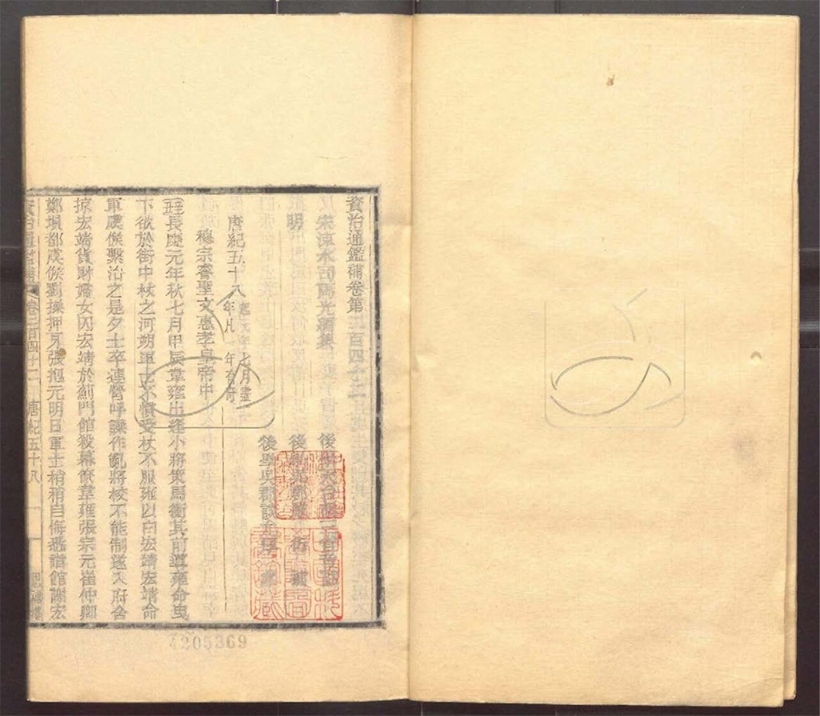 資治通鑑補卷第二百四十二
宋涑水司馬光編集
後學天台胡三省音註
明
後學吳郡嚴衍補
後學吳郡談允厚
唐紀五十八
穆宗睿聖文惠孝皇帝中
長慶元年秋七月甲辰韋雍出逢小將策馬衝其前導雍命曳
下欲於街中杖之河朔軍士不慣受杖不服雍以白宏靖宏靖命
軍虞候繫治之是夕士卒連營呼譟作亂將校不能制遂入府舍
掠宏靖貨財婦女囚宏靖於薊門館殺幕僚韋雍張宗元崔仲卿
鄭塤都虞候劉操押牙張抱元明日軍士稍稍自悔悉詣館謝宏
資治通鑑補 卷二百四十二 唐紀五十八 一
4205369